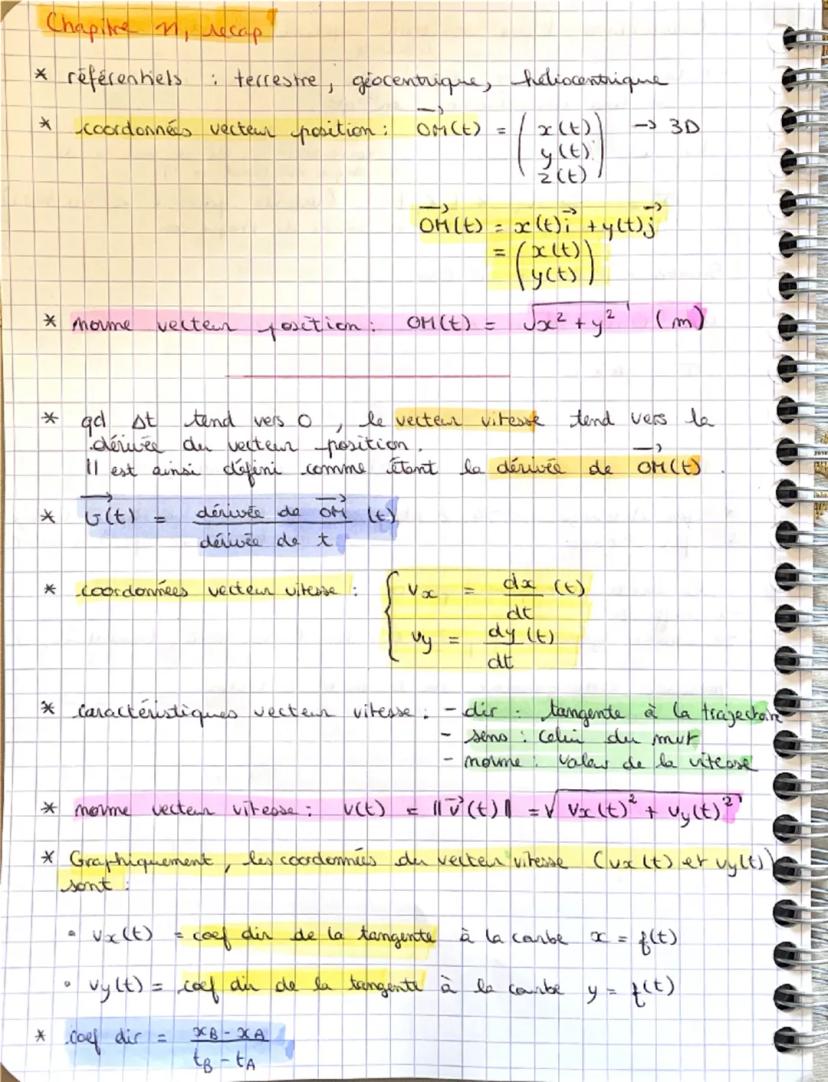 Chapitre 11, récap
* référentiels : terrestre, géocentrique, héliocentrique
* coordonnées vecteur position : OM(t) = ( x(t) y(t) z(t) ) → 3D
OM(t) = x(t)i + y(t)j
= ( x(t) y(t) )
* norme vecteur position : OM(t) = √x² + y² (m)
* qd Δt tend vers 0, le vecteur vitesse tend vers la
dérivée du vecteur position.
Il est ainsi défini comme étant la dérivée de OM(t).
* v(t) = dérivée de OM (t)
dérivée de t
* coordonnées vecteur vitesse : { vx = dx (t)
dt
vy = dy (t)
dt
* caractéristiques vecteur vitesse : - dir : tangente à la trajectoire
- sens : celui du mvt
- norme : valeur de la vitesse
* norme vecteur vitesse : v(t) = ||v(t)|| = √vx(t)² + vy(t)²
* Graphiquement, les coordonnées du vecteur vitesse (vx(t) et vy(t))
sont :
• vx(t) = coef dir de la tangente à la courbe x = f(t)
• vy(t) = coef dir de la tangente à la courbe y = f(t)
* coef dir = xB - xA
tB - tA